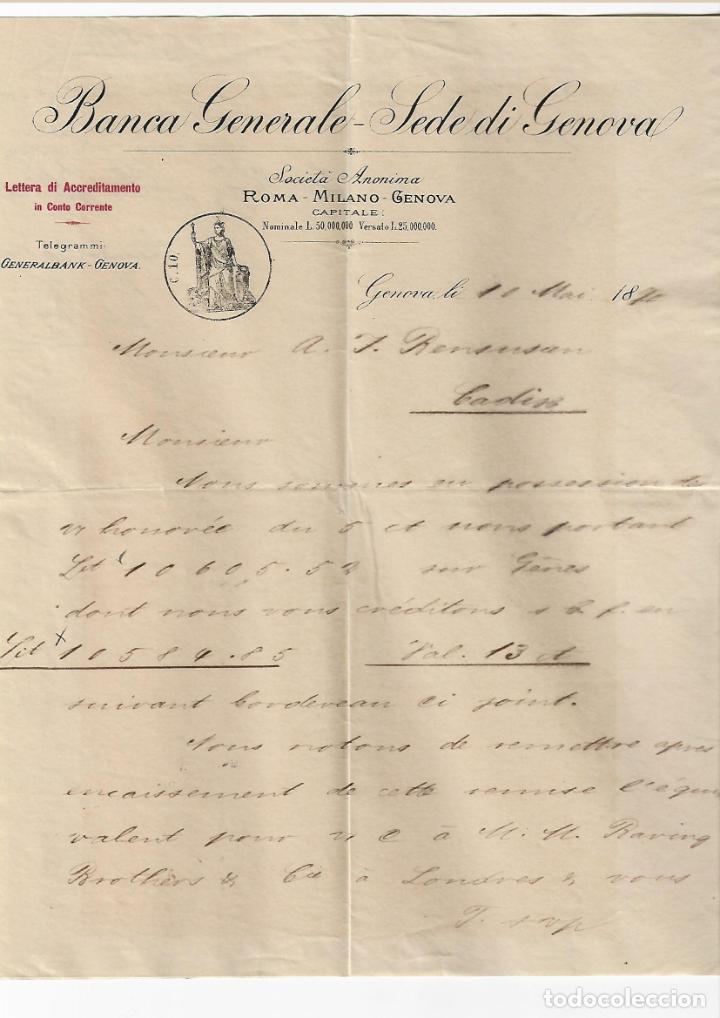 Banca Generale - Sede di Genova
Lettera di Accreditamento
in Conto Corrente
Telegrammi:
GENERALBANK-GENOVA.
Società Anonima
ROMA - MILANO - GENOVA
CAPITALE:
Nominale L. 50,000,000 Versato L. 25,000,000.
C. 10.
Genova, li 10 Mai 1890
Monsieur A. J. Bensusan
Cadix
Monsieur
Nous sommes en possession de
v/ honorée du 5 ct nous portant
Lit 10605.52 sur Gênes
dont nous vous créditons s b f en
Lit 10584.85 Val. 13 ct
suivant bordereau ci joint.
Nous notons de remettre après
encaissement de cette remise l'équi
valent pour v/ c à M. M. Baring
Brothers & Cie à Londres & vous
T. s v p
todocoleccion